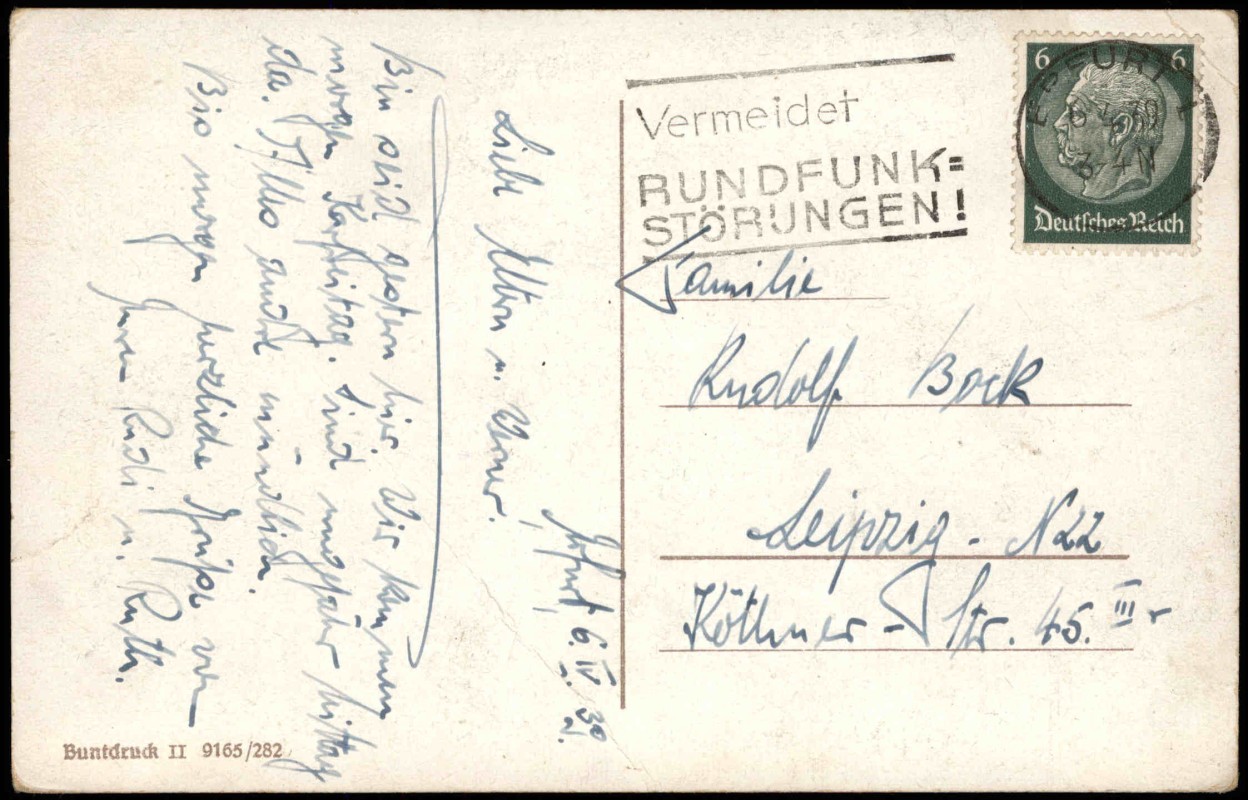 Erfurt, 6. IV 39
N.
Liebe Eltern u. Werner.
Bin seid gestern hier. Wir kommen
morgen Karfreitag. Sind ungefähr Mittag
da. Alles andre mündlich.
Bis morgen herzliche Grüße von
Euren Rudi u. Ruth.
Buntdruck II 9165/282
Vermeidet
RUNDFUNK=
STÖRUNGEN!
6 6
Deutsches Reich
ERFURT
3-4 N
Familie
Rudolf Bock
Leipzig - N22
Köthner - Str. 45. III r